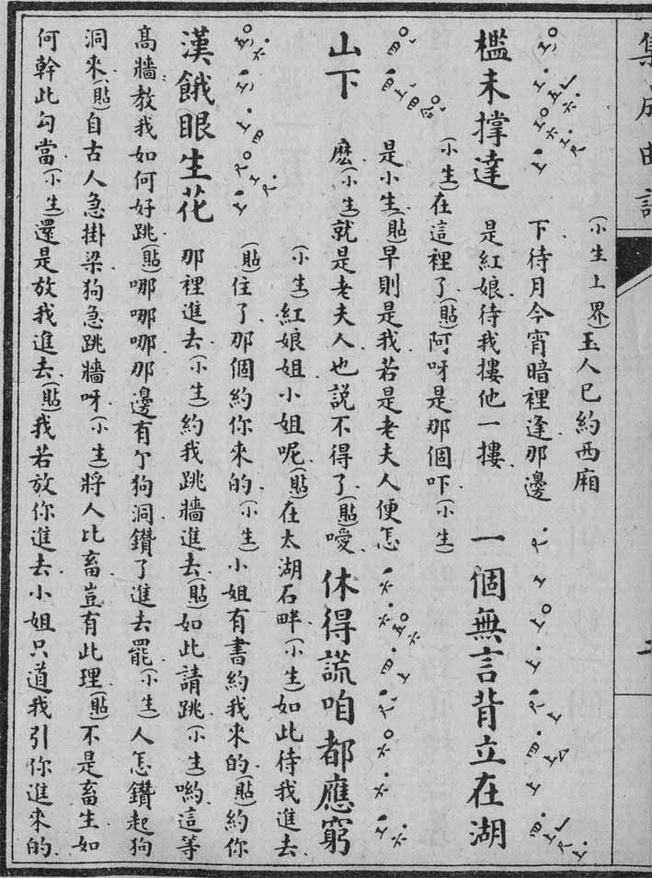 集成曲譜
(小生上界)玉人已約西廂
下待月今宵暗裡逢那邊
檻未撐達 是紅娘待我摟他一摟 一個無言背立在湖
(小生)在這裡了(貼)阿呀是那個吓(小生)
是小生(貼)早則是我若是老夫人便怎
山下 麽(小生)就是老夫人也説不得了(貼)噯 休得謊咱都應窮
(小生)紅娘姐小姐呢(貼)在太湖石畔(小生)如此待我進去
(貼)住了那個約你來的(小生)小姐有書約我來的(貼)約你
漢餓眼生花 那裡進去(小生)約我跳牆進去(貼)如此請跳(小生)喲這等
高牆教我如何好跳(貼)哪哪哪那邊有个狗洞鑽了進去罷(小生)人怎鑽起狗
洞來(貼)自古人急掛梁狗急跳牆呀(小生)將人比畜豈有此理(貼)不是畜生如
何幹此勾當(小生)還是放我進去(貼)我若放你進去小姐只道我引你進來的